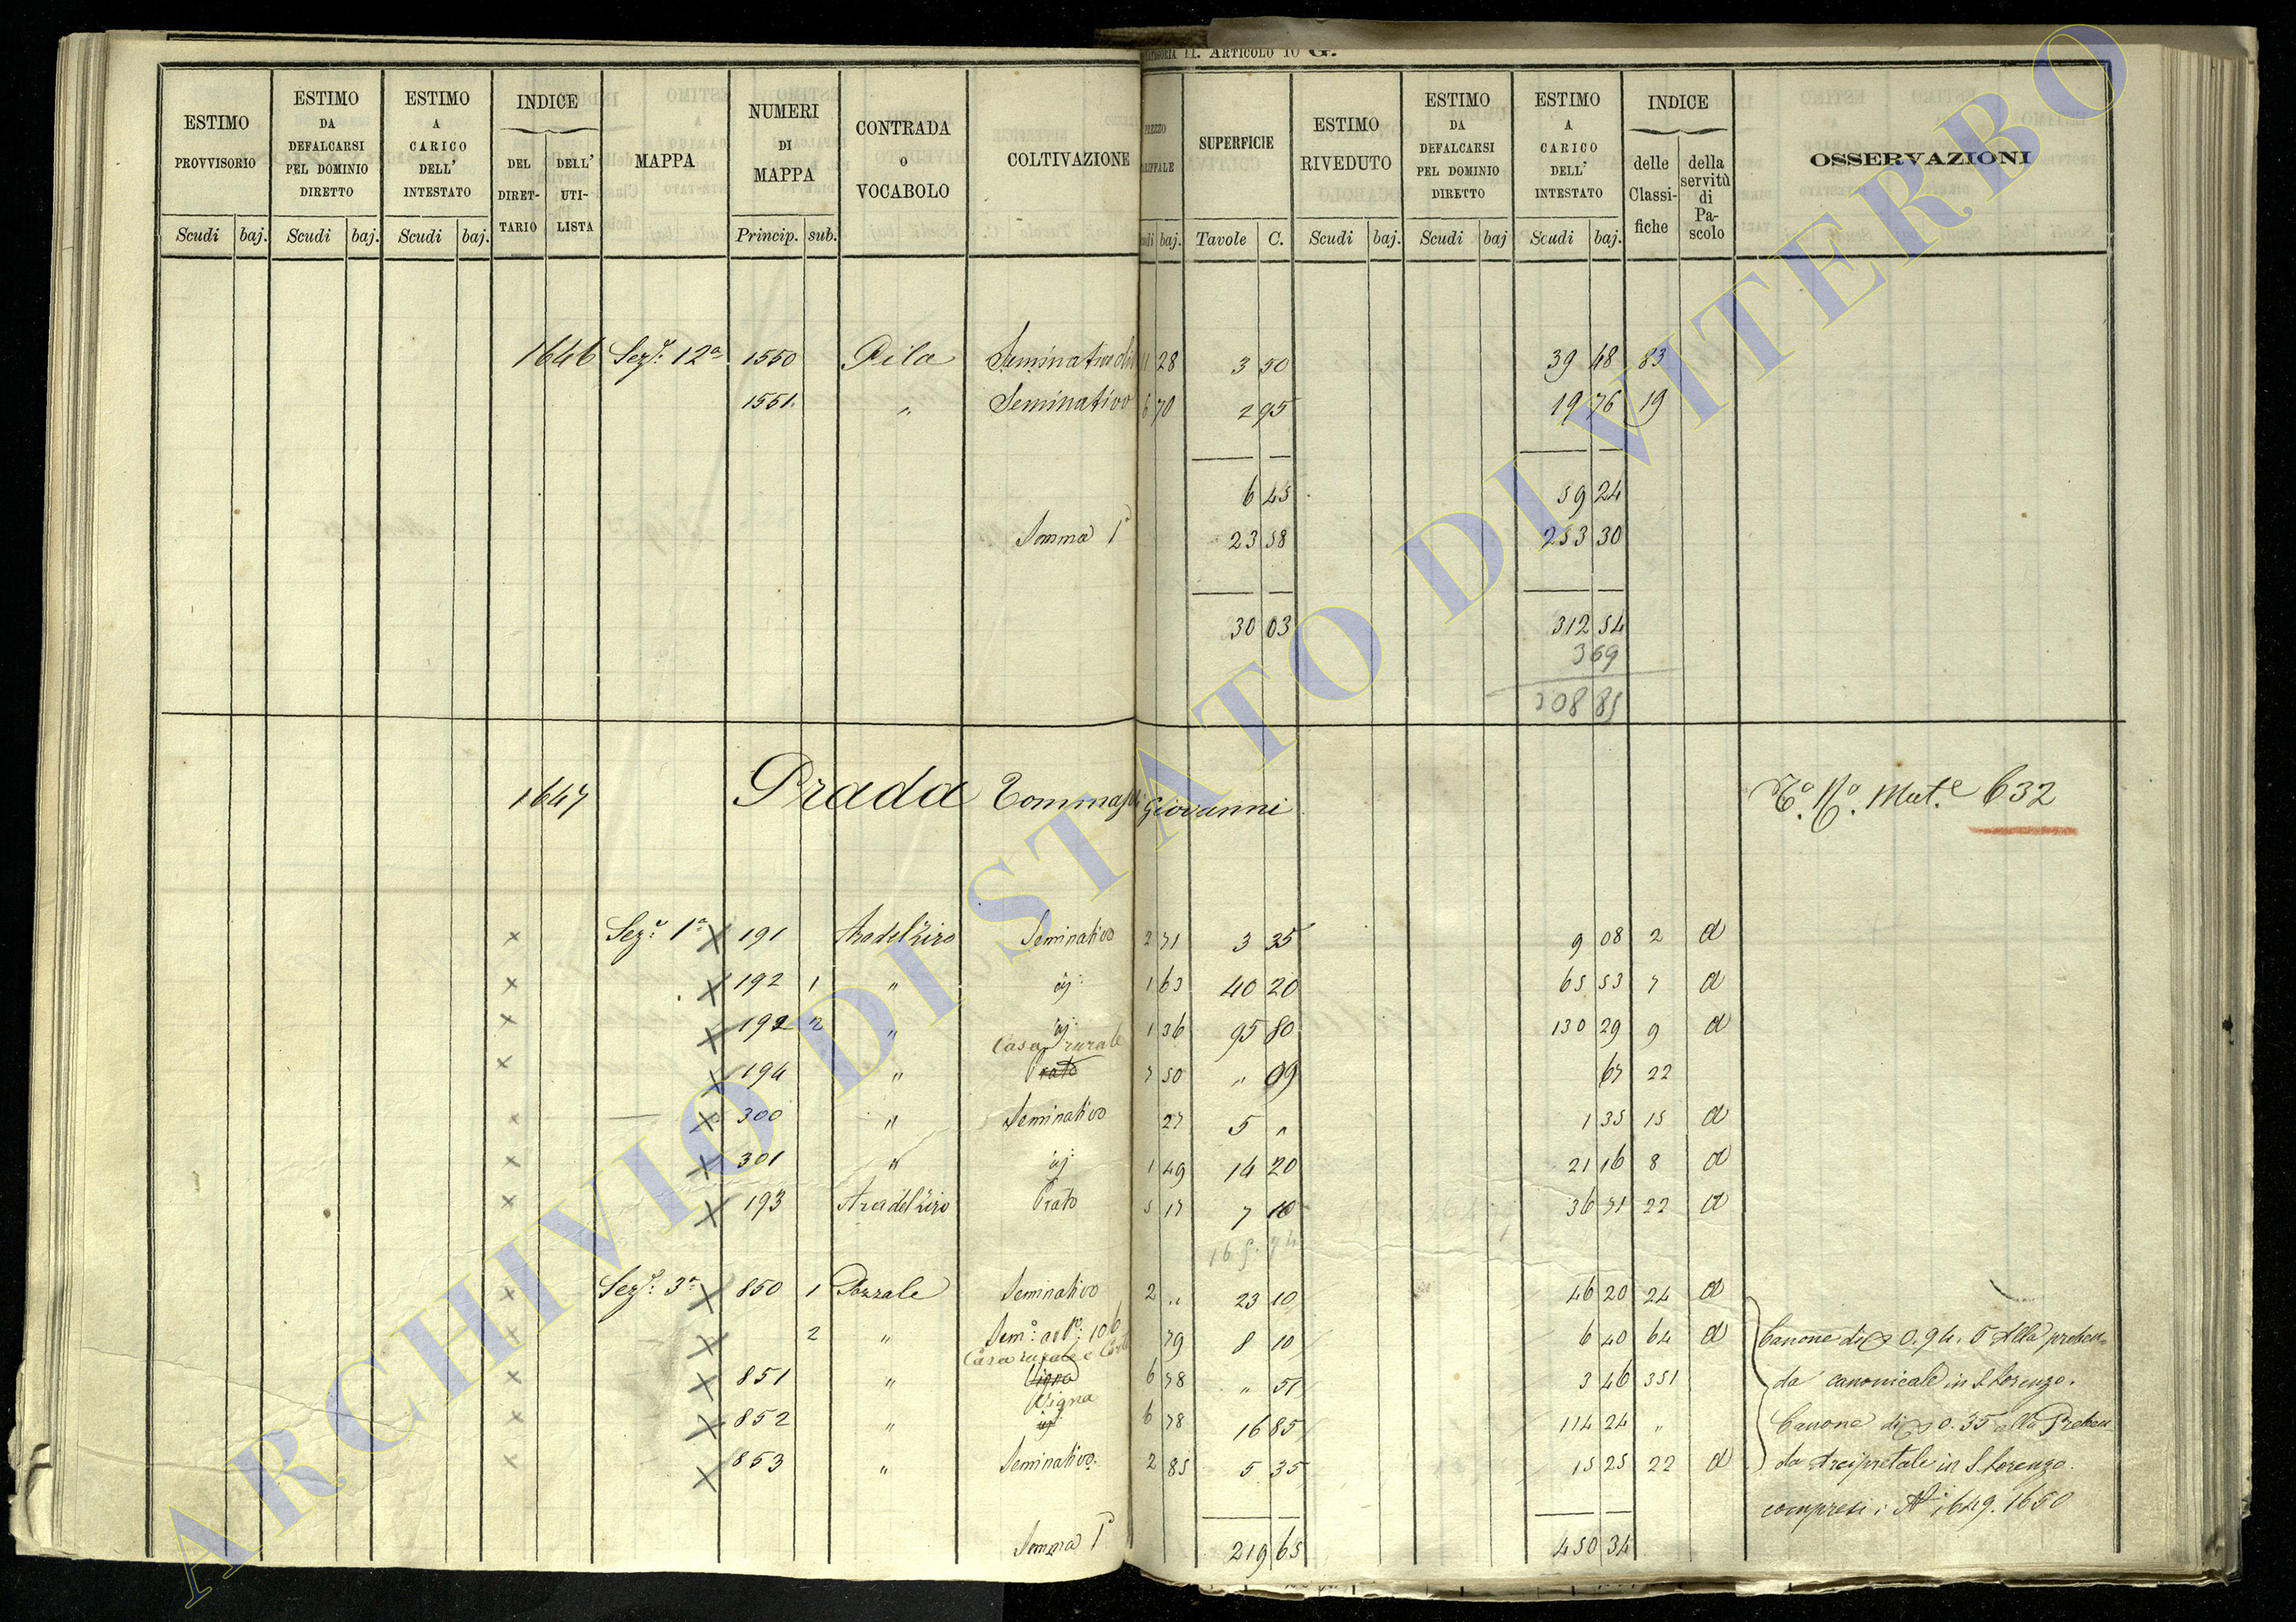 CATEGORIA II. ARTICOLO 10 G.
ESTIMO PROVVISORIO Scudi baj.
ESTIMO DA DEFALCARSI PEL DOMINIO DIRETTO Scudi baj.
ESTIMO A CARICO DELL' INTESTATO Scudi baj.
INDICE DEL DIRET-TARIO DELL' UTI-LISTA
MAPPA
NUMERI DI MAPPA Princip. sub.
CONTRADA O VOCABOLO
COLTIVAZIONE
baj.
SUPERFICIE Tavole C.
ESTIMO RIVEDUTO Scudi baj.
ESTIMO DA DEFALCARSI PEL DOMINIO DIRETTO Scudi baj
ESTIMO A CARICO DELL' INTESTATO Scudi baj.
INDICE delle Classi-fiche della servitù di Pa-scolo
OSSERVAZIONI
1646 Sez.e 12a 1550 Pila 11 28 3 50 39 48 83
1551. " Seminativo 6 70 2 95 19 76 19
6 45 59 24
Somma Pe 23 58 253 30
30 03 312 54
3 69
308 85
1647 Prada Tommaso di Giovanni To. No. Mut.e 632
× Sez.e 1a × 191 Ara del Ziro Seminativo 2 71 3 35 9 08 2 d
× × 192 1 " id: 1 63 40 20 65 53 7 d
× × 192 2 " id: 1 36 95 80 130 29 9 d
Casa rurale
× × 194 " Prato 7 50 " 09 67 22
× × 300 " Seminativo 27 5 " 1 35 15 d
× × 301 " id: 1 49 14 20 21 16 8 d
× × 193 Ara del Ziro Prato 5 17 7 10 36 71 22 d
165.74
× Sez.e 3a × 850 1 Pozzale Seminativo 2 " 23 10 46 20 24 d
× × 2 " Sem.o 106 79 8 10 6 40 64 d Canone di 0.94.5 alla preben-
Casa rurale e Corte
× × 851 " Vigna 6 78 " 51 3 46 351 da canonicale in S. Lorenzo.
Vigna
× × 852 " id: 6 78 16 85 114 24 " Canone di 0.35 alla Preben
× × 853 " Seminativo. 2 85 5 35 15 25 22 d da Arcipretale in S. Lorenzo.
compresi i Ni 1649. 1650
Somma Pe 219 65 450 34
ARCHIVIO DI STATO DI VITERBO